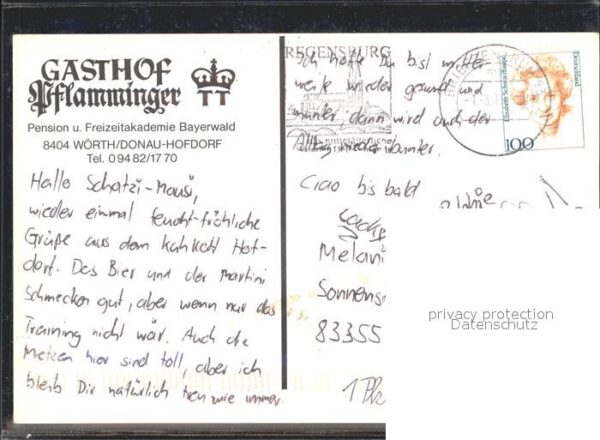 GASTHOF
Pflamminger
TT
Pension u. Freizeitakademie Bayerwald
8404 WÖRTH/DONAU-HOFDORF
Tel. 0 94 82/17 70
Hallo Schatzi-Mausi,
wieder einmal feucht-fröhliche
Grüße aus dem Hof-
dorf. Das Bier und der Martini
schmecken gut, aber wenn nur das
Training nicht wär. Auch die
hier sind toll, aber ich
bleib Dir natürlich treu wie immer.
REGENSBURG
Ich hoffe Du bist mittler-
weile wieder gesund und
munter dann wird auch der
Alltag wieder bunter.
Ciao bis bald
Melani
Sonnens
83355
1 Pk
Deutschland
100
privacy protection
Datenschutz